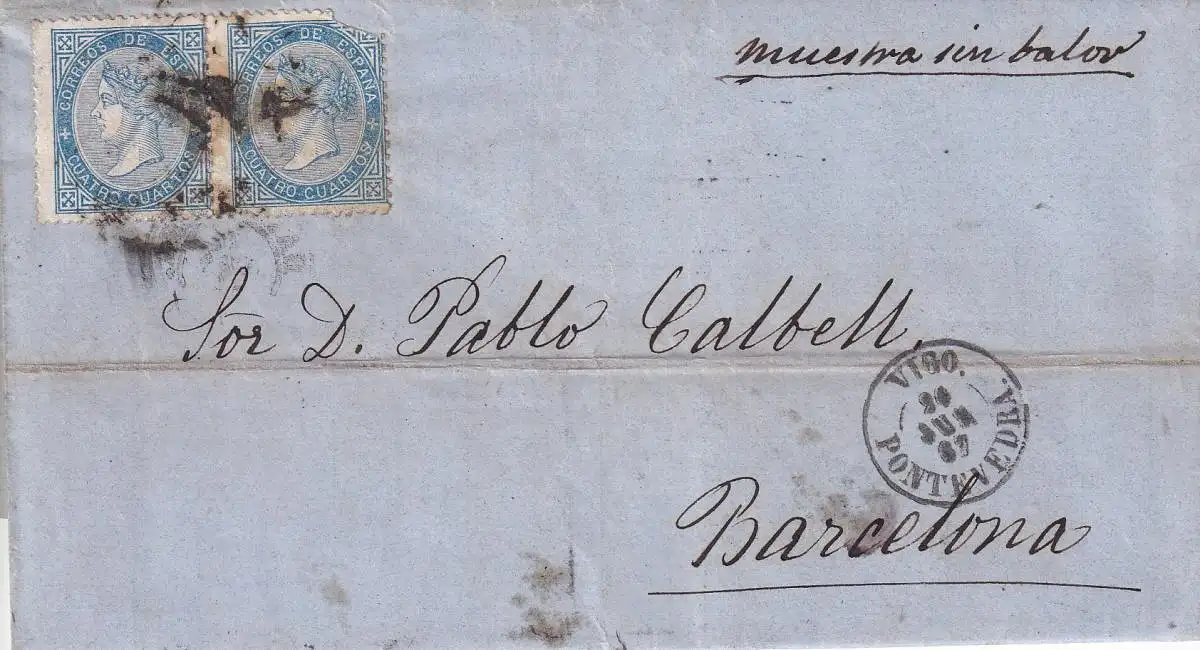 CORREOS DE ESPAÑA
CUATRO CUARTOS
CORREOS DE ESPAÑA
CUATRO CUARTOS
muestra sin balor
Sor D. Pablo Calbell.
VIGO.
JUN
67
PONTEVEDRA.
Barcelona